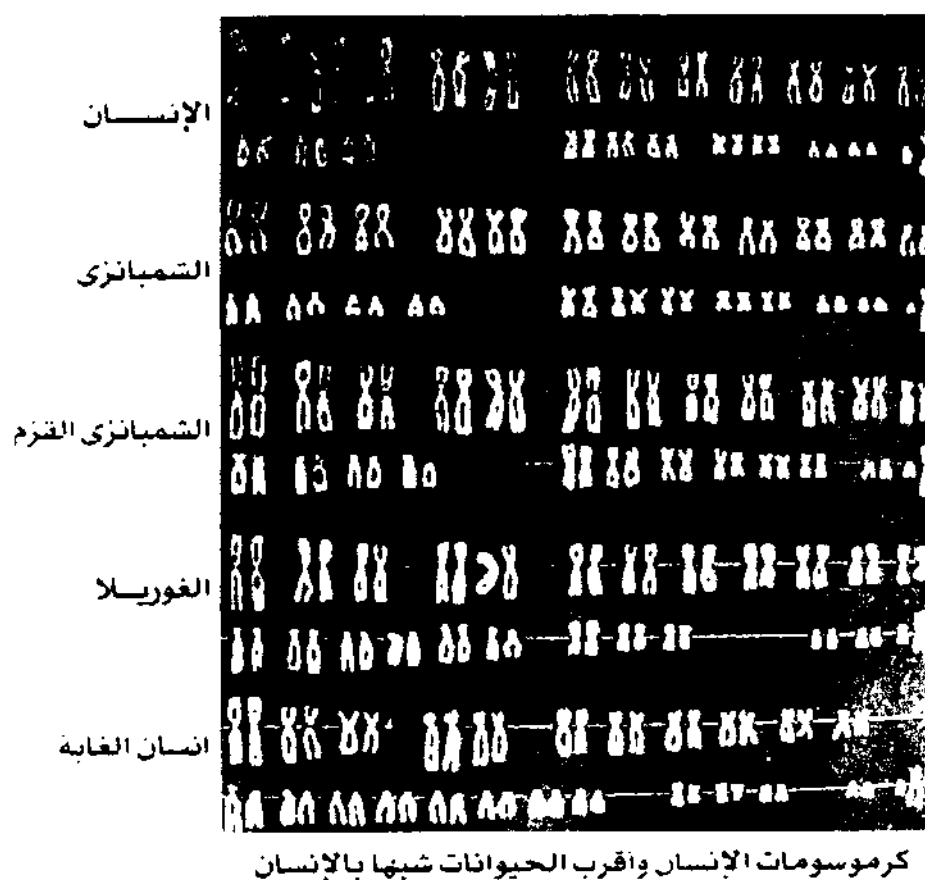 الإنســـان
الشمبانزى
الشمبانزى القزم
الغوريـــلا
انسان الغابة
كرموسومات الإنسان وأقرب الحيوانات شبها بالإنسان